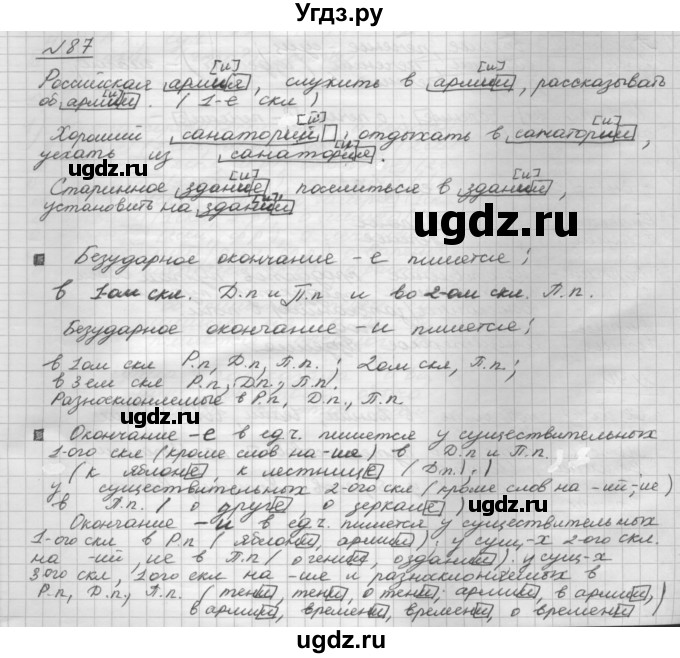 Угдз.ру
№87
[и] [и]
Российская армия, служить в армии, рассказывать
[и]
об армии. (1-е скл)
[й] [и]
Хороший санаторий, отдыхать в санатории,
[и]
уехать из санатория.
[и] [и]
Старинное здание, поселиться в здании,
[и]
установить на здании
Безударное окончание -е пишется;
в 1-ом скл. Д.п и П.п и во 2-ом скл. П.п.
Безударное окончание -и пишется;
в 1ом скл Р.п, Д.п, П.п.; 2ом скл, П.п;
в 3ем скл Р.п, Д.п., П.п.
Разносклоняемые в Р.п, Д.п., П.п.
Окончание -е в ед.ч. пишется у существительных
1-ого скл (кроме слов на -ие) в Д.п и П.п.
(к яблоне, к лестнице (Д.п);)
у существительных 2-ого скл (кроме слов на -ий;ие)
в П.п. (о друге, о зеркале)
Окончание -и в ед.ч. пишется у существительных
1-ого скл в Р.п (яблони, армии) у сущ-х 2-ого скл.
на -ий, ие в П.п (о гении, о здании). у сущ-х
3-ого скл, 1ого скл на -ие и разносклоняемых в
Р.п, Д.п., П.п. (тени, тени, о тени; армии, в армии,)
в армии, времени, времени, о времени)
ugdz.ru
ugdz.ru
ugdz.ru
ugdz.ru
ugdz.ru
ugdz.ru
ugdz.ru
ugdz.ru